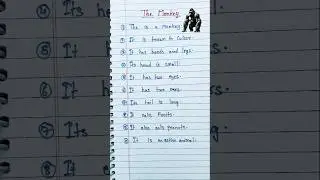 The Monkey
① The is a monkey.
② It is brown in colour.
③ It has hands and legs.
④ Its head is small.
⑤ It has two eyes.
⑥ It has two ears.
⑦ Its tail is long.
⑧ It eats fruits.
⑨ It also eats peanuts.
⑩ It is an active animal.